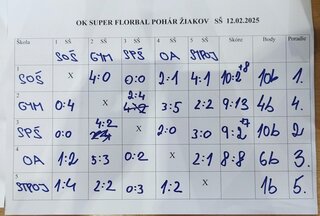 OK SUPER FLORBAL POHÁR ŽIAKOV SŠ 12.02.2025
Škola 1 SŠ 2 SŠ 3 SŠ 4 SŠ 5 SŠ Skóre Body Poradie
SOŠ GYM SPŠ OA STROJ
1 SOŠ X 4:0 0:0 2:1 4:1 10:2 +8 10b 1.
2 GYM 0:4 X 2:4 3:5 2:2 9:13 4b 4.
3 SPŠ 0:0 4:2 X 2:0 3:0 9:2 +7 10b 2.
4 OA 1:2 5:3 0:2 X 2:1 8:8 6b 3.
5 STROJ 1:4 2:2 0:3 1:2 X 1b 5.